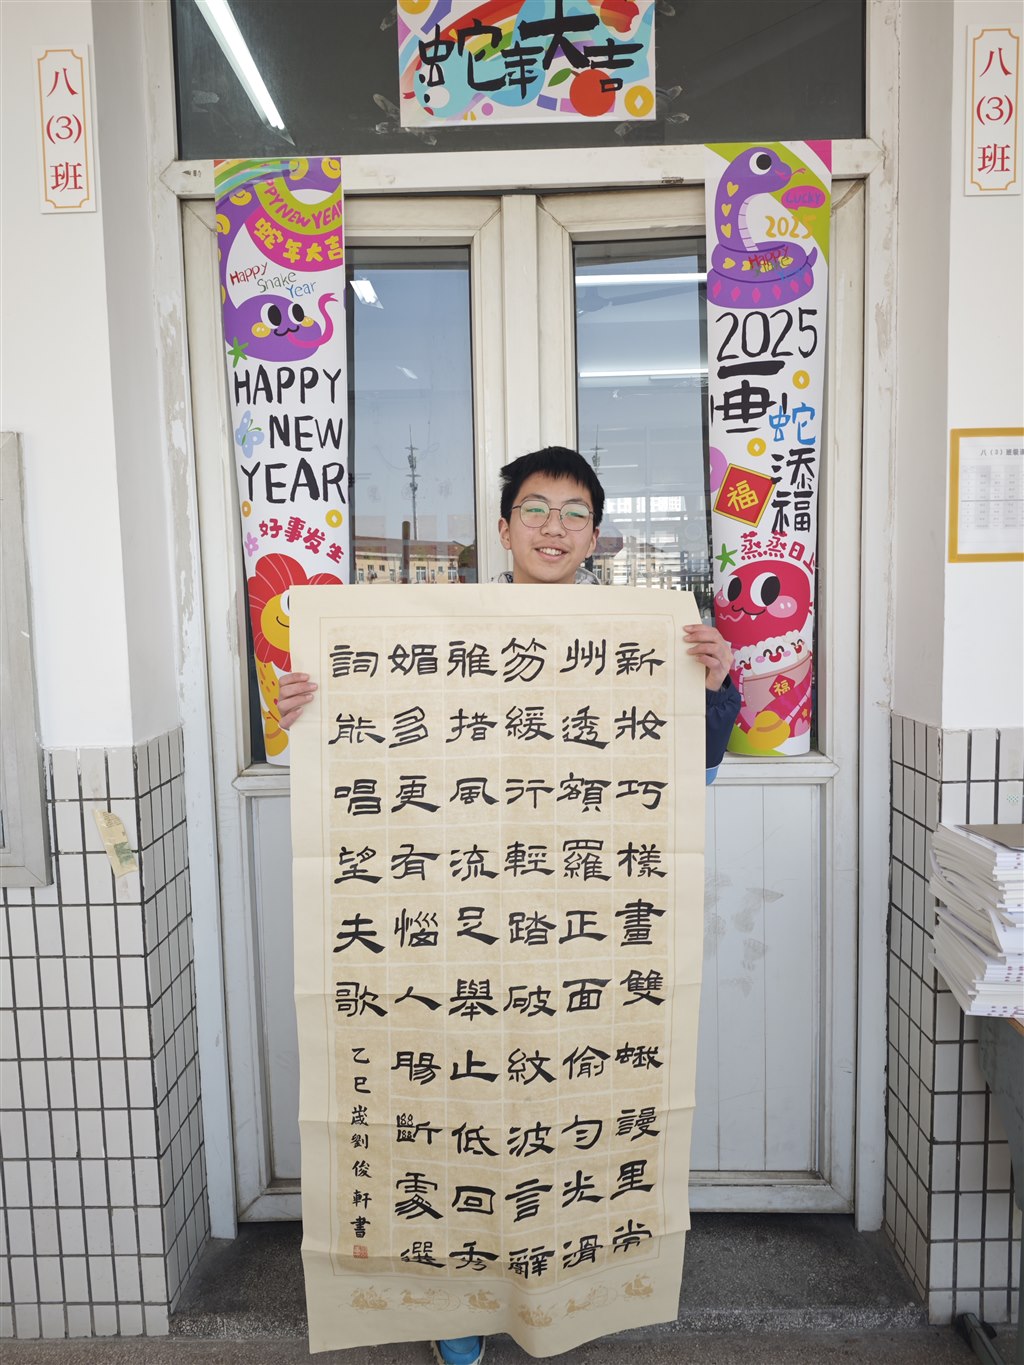 蛇年大吉
八(3)班
八(3)班
HAPPY NEW YEAR
蛇年大吉
Happy
Snake
Year
HAPPY
NEW
YEAR
好事发生
LUCKY
2025
Happy
2025
画蛇
添福
福
蒸蒸日上
福
新妝巧樣畫雙蛾謾里常
州透額羅正面偷勻光滑
笏緩行輕踏破紋波言辭
雅措風流足舉止低回秀
媚多更有惱人腸斷處選
詞能唱望夫歌
乙巳歲劉俊軒書